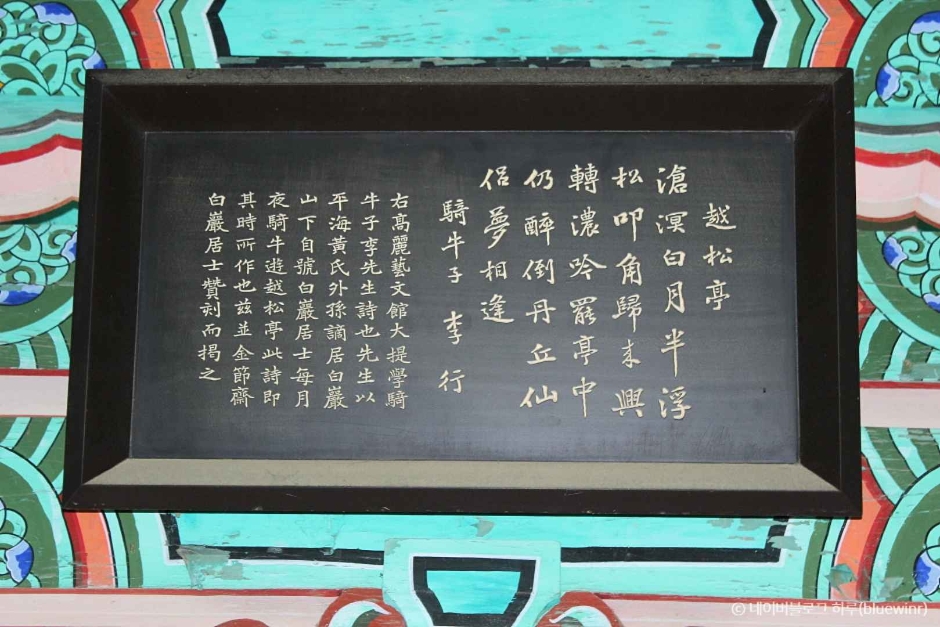 越松亭
滄溟白月半浮
松叩角歸来興
轉濃吟罷亭中
仍醉倒丹丘仙
侶夢相逢
騎牛子 李 行
右高麗藝文館大提學騎
牛子李先生詩也先生以
平海黃氏外孫謫居白巖
山下自號白巖居士每月
夜騎牛遊越松亭此詩即
其時所作也玆並金節齋
白巖居士贊刻而揭之
ⓒ 네이버블로그 하루(bluewinr)